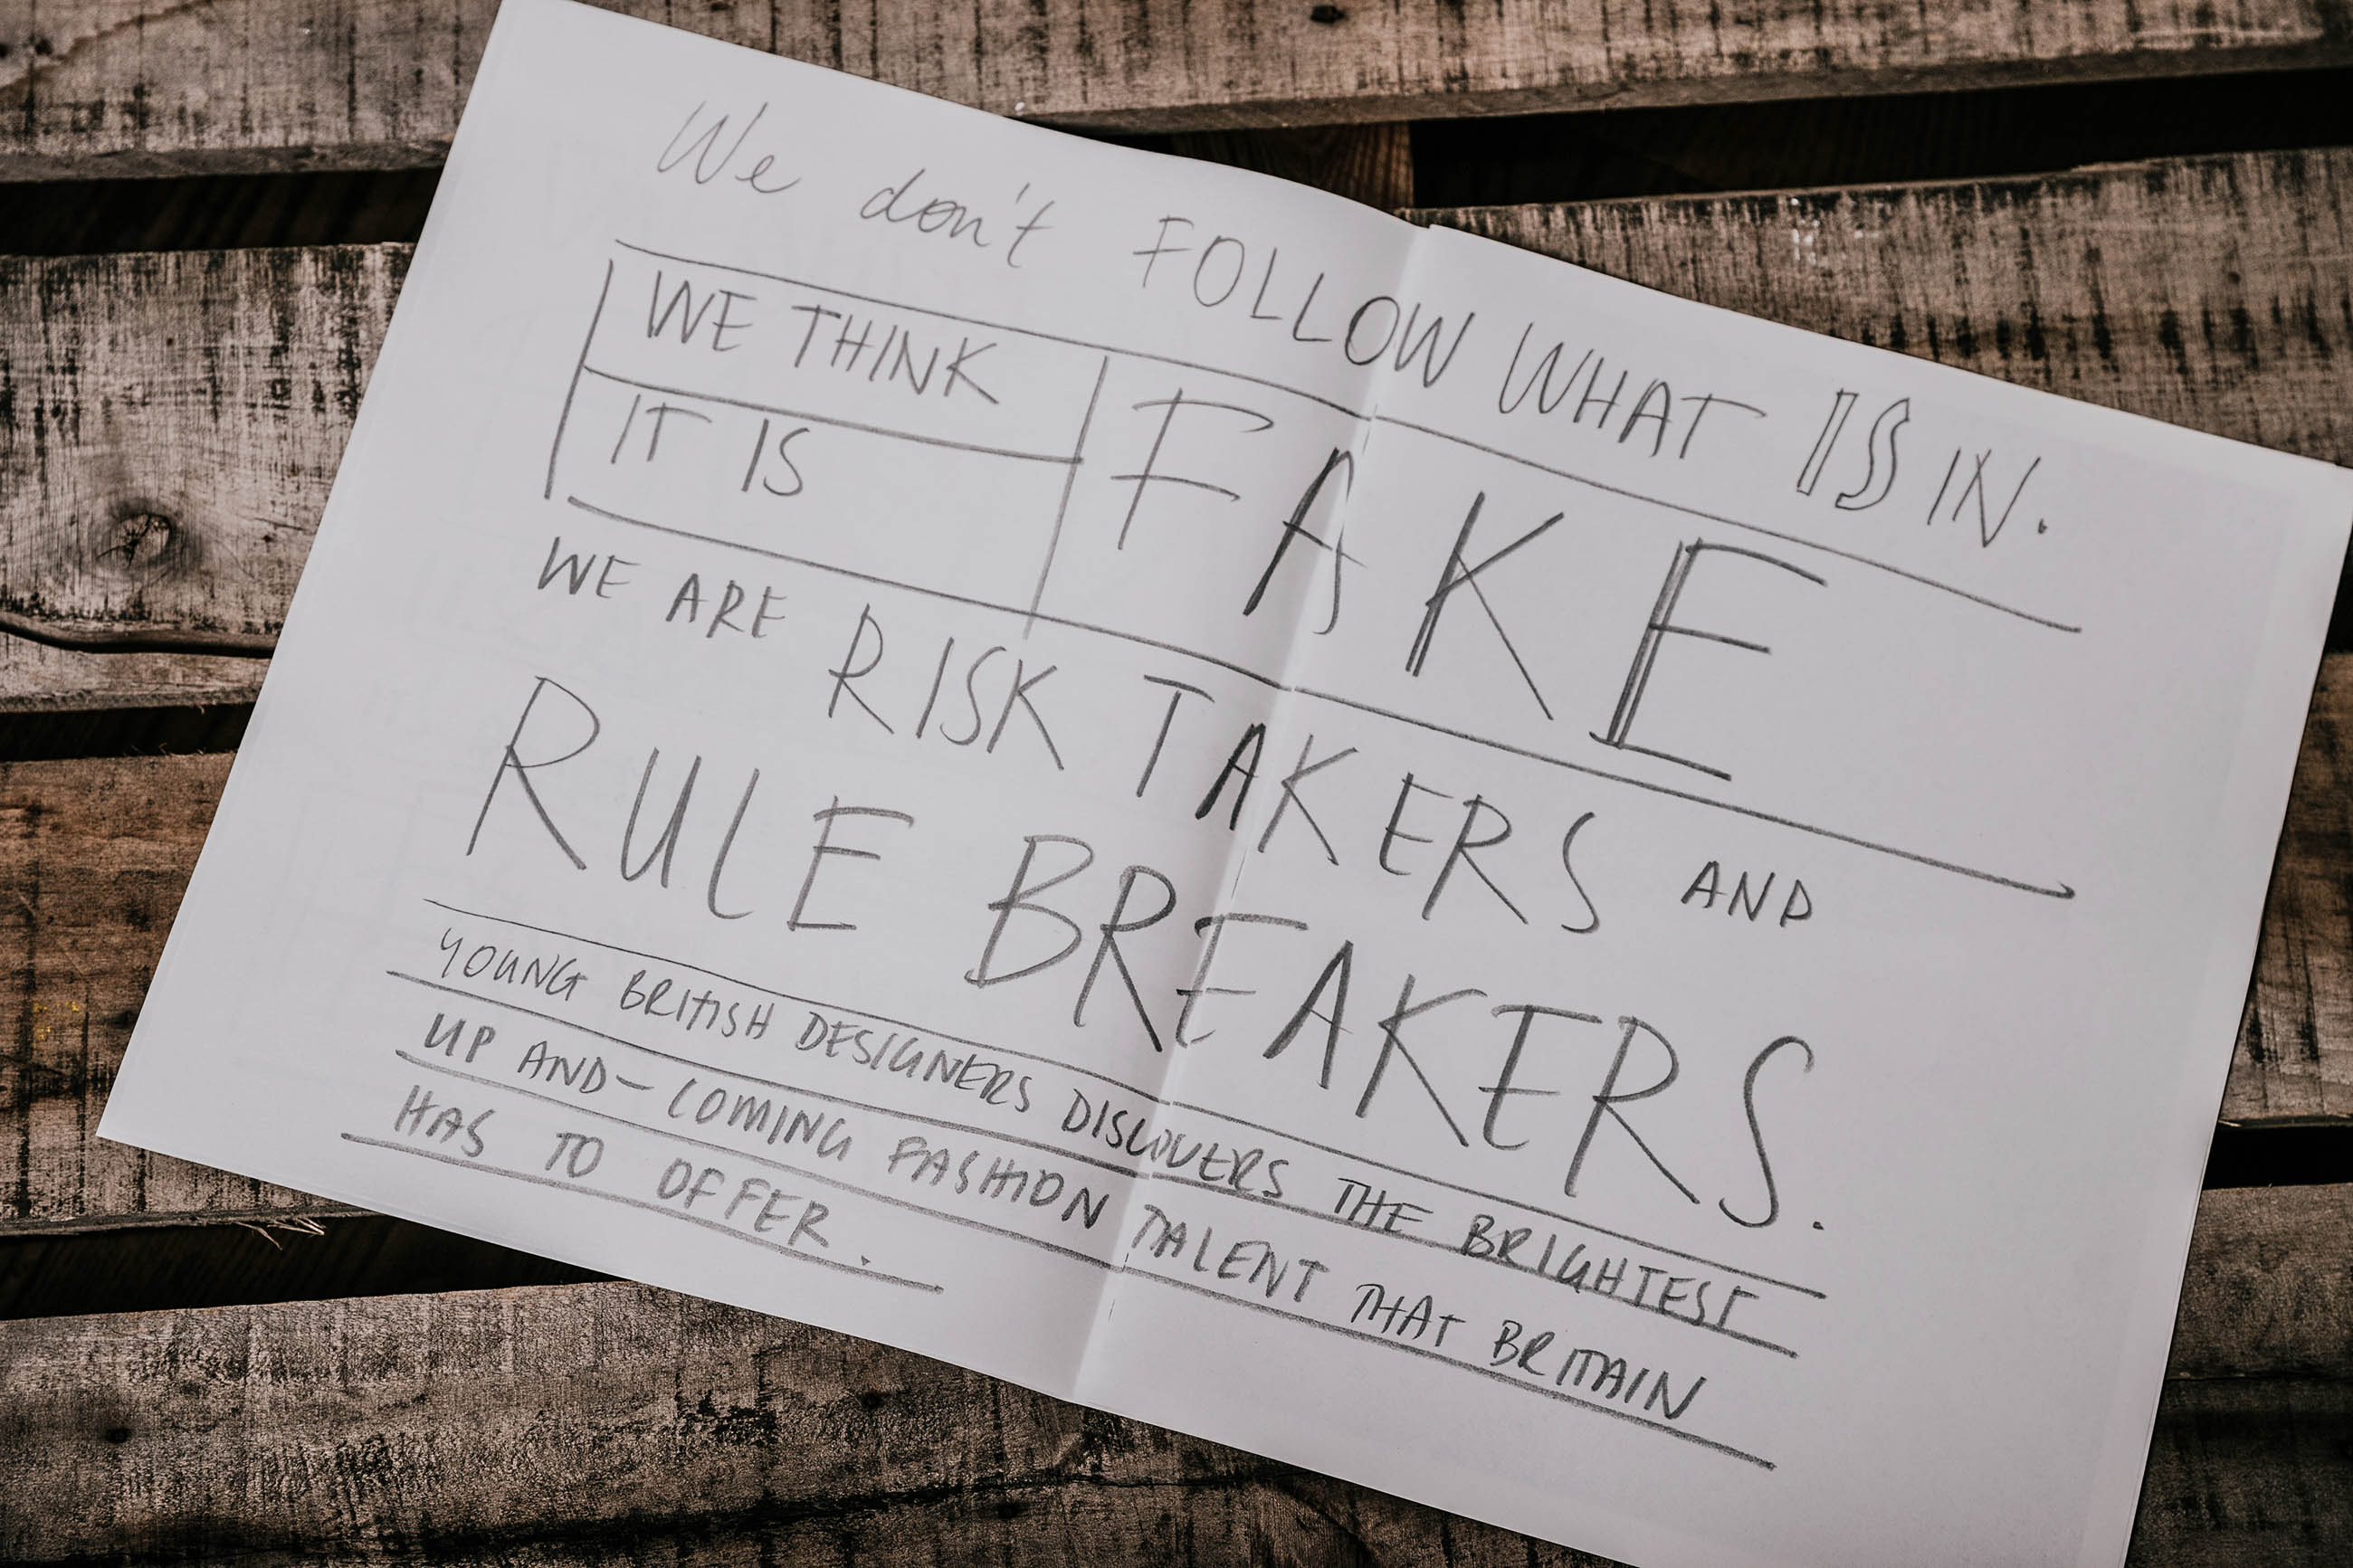 We don't FOLLOW WHAT IS IN.
WE THINK
IT IS
FAKE
WE ARE RISK TAKERS AND
RULE BREAKERS.
YOUNG BRITISH DESIGNERS DISCOVERS THE BRIGHTEST
UP AND-COMING FASHION TALENT THAT BRITAIN
HAS TO OFFER.